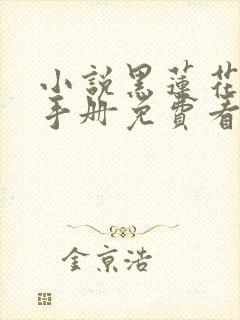 小說黑蓮花
手册免費看
金京浩